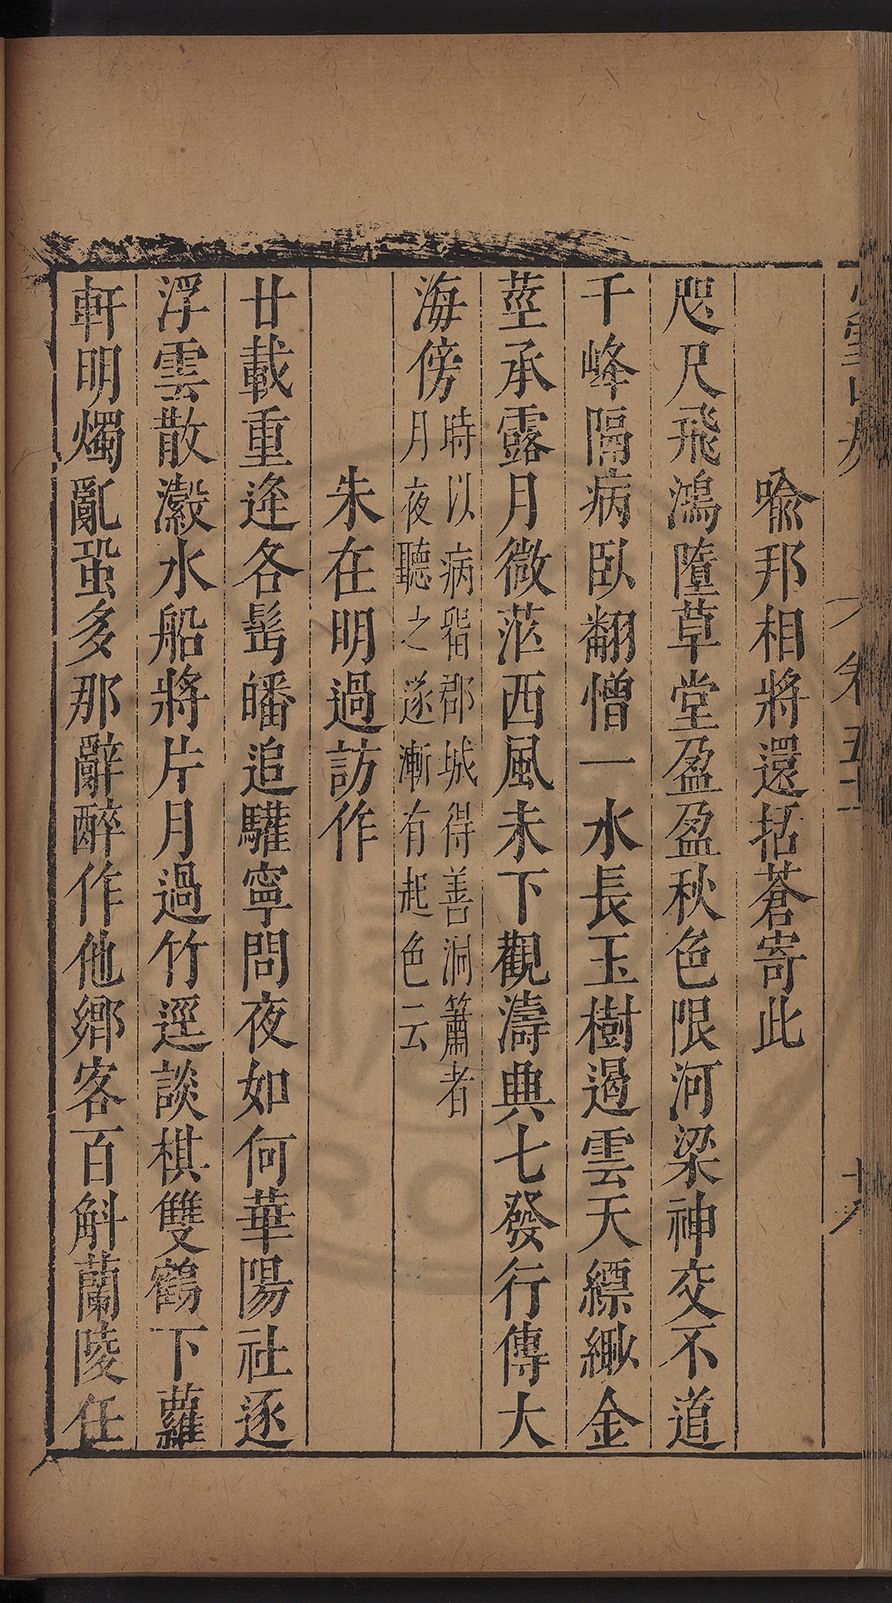 喻邦相將還括蒼寄此
咫尺飛鴻墮草堂盈盈秋色限河梁神交不道
千峰隔病臥翻憎一水長玉樹過雲天縹緲金
莖承露月微茫西風未下觀濤興七發行傳大
海傍
時以病畱郡城得善洞簫者
月夜聽之遂漸有起色云
朱在明過訪作
廿載重逢各髩皤追驩寧問夜如何華陽社逐
浮雲散瀫水船將片月過竹逕談棋雙鶴下蘿
軒明燭亂蛩多那辭醉作他鄉客百斛蘭陵任
卷五十
十八